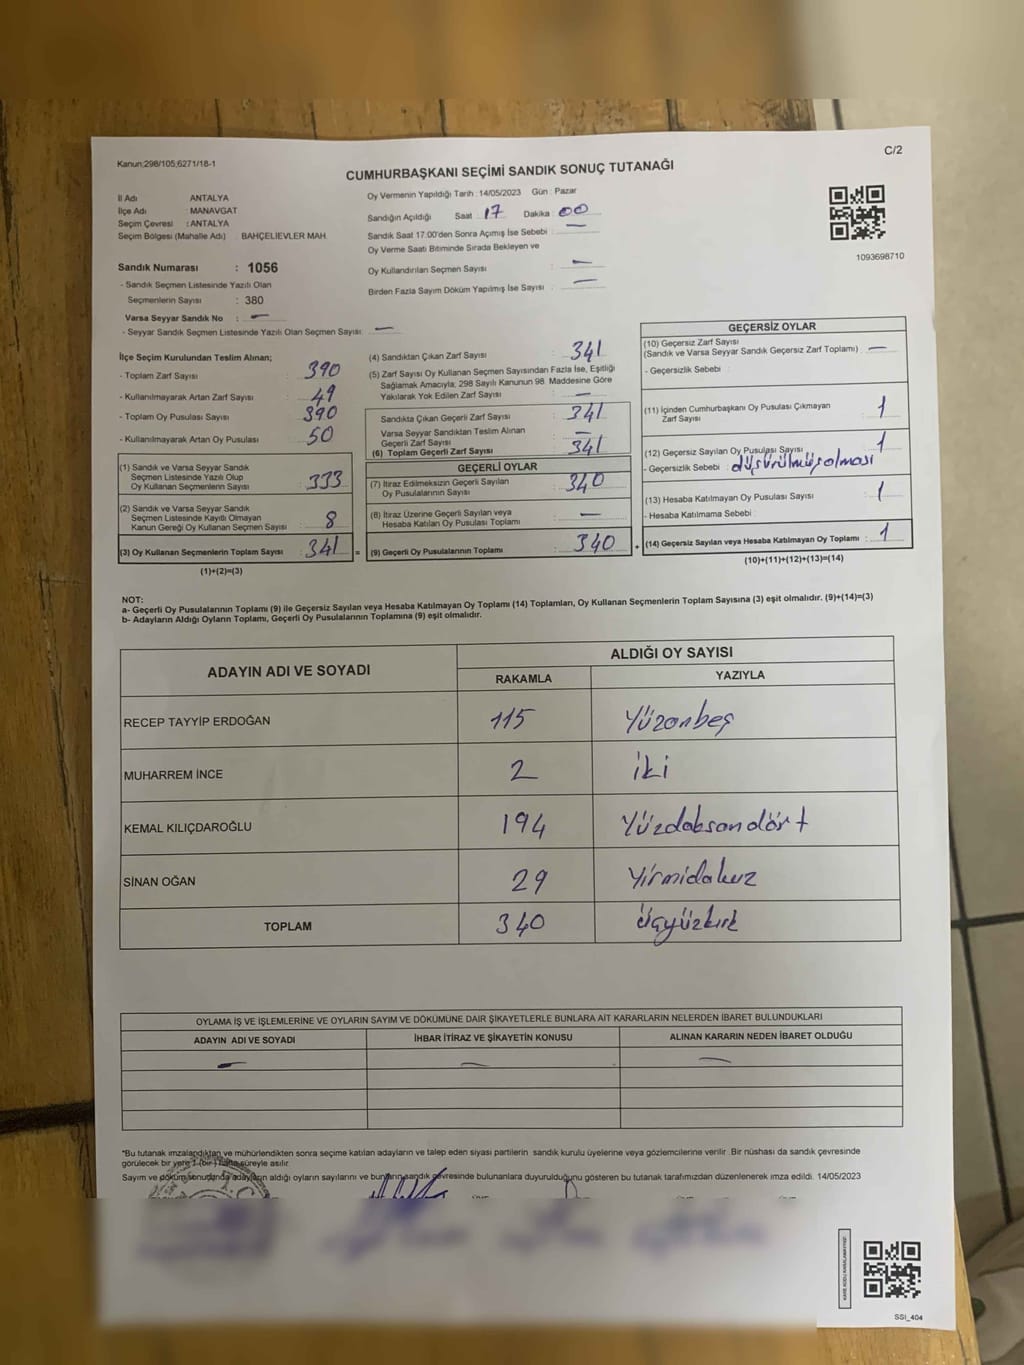 Kanun;298/105,6271/18-1
C/2
CUMHURBAŞKANI SEÇİMİ SANDIK SONUÇ TUTANAĞI
İl Adı ANTALYA
İlçe Adı : MANAVGAT
Seçim Çevresi : ANTALYA
Seçim Bölgesi (Mahalle Adı) BAHÇELİEVLER MAH.
Sandık Numarası : 1056
- Sandık Seçmen Listesinde Yazılı Olan
Seçmenlerin Sayısı : 380
Varsa Seyyar Sandık No : —
- Seyyar Sandık Seçmen Listesinde Yazılı Olan Seçmen Sayısı: —
Oy Vermenin Yapıldığı Tarih : 14/05/2023 Gün : Pazar
Sandığın Açıldığı Saat 17 Dakika : 00
Sandık Saat 17:00'den Sonra Açımış İse Sebebi : —
Oy Verme Saati Bitiminde Sırada Bekleyen ve
Oy Kullandırılan Seçmen Sayısı : —
Birden Fazla Sayım Döküm Yapılmış İse Sayısı : —
1093698710
İlçe Seçim Kurulundan Teslim Alınan;
- Toplam Zarf Sayısı : 390
- Kullanılmayarak Artan Zarf Sayısı : 49
- Toplam Oy Pusulası Sayısı : 390
- Kullanılmayarak Artan Oy Pusulası : 50
(1) Sandık ve Varsa Seyyar Sandık
Seçmen Listesinde Yazılı Olup
Oy Kullanan Seçmenlerin Sayısı : 333
(2) Sandık ve Varsa Seyyar Sandık
Seçmen Listesinde Kayıtlı Olmayan
Kanun Gereği Oy Kullanan Seçmen Sayısı : 8
(3) Oy Kullanan Seçmenlerin Toplam Sayısı : 341 =
(1)+(2)=(3)
(4) Sandıktan Çıkan Zarf Sayısı : 341
(5) Zarf Sayısı Oy Kullanan Seçmen Sayısından Fazla İse, Eşitliği
Sağlamak Amacıyla; 298 Sayılı Kanunun 98. Maddesine Göre
Yakılarak Yok Edilen Zarf Sayısı : —
Sandıkta Çıkan Geçerli Zarf Sayısı : 341
Varsa Seyyar Sandıktan Teslim Alınan
Geçerli Zarf Sayısı : —
(6) Toplam Geçerli Zarf Sayısı : 341
GEÇERLİ OYLAR
(7) İtiraz Edilmeksizin Geçerli Sayılan
Oy Pusulalarının Sayısı : 340
(8) İtiraz Üzerine Geçerli Sayılan veya
Hesaba Katılan Oy Pusulası Toplamı : —
(9) Geçerli Oy Pusulalarının Toplamı : 340 +
GEÇERSİZ OYLAR
(10) Geçersiz Zarf Sayısı
(Sandık ve Varsa Seyyar Sandık Geçersiz Zarf Toplamı) : —
- Geçersizlik Sebebi :
(11) İçinden Cumhurbaşkanı Oy Pusulası Çıkmayan
Zarf Sayısı : 1
(12) Geçersiz Sayılan Oy Pusulası Sayısı : 1
- Geçersizlik Sebebi : düşürülmüş olması
(13) Hesaba Katılmayan Oy Pusulası Sayısı : 1
- Hesaba Katılmama Sebebi :
(14) Geçersiz Sayılan veya Hesaba Katılmayan Oy Toplamı : 1
(10)+(11)+(12)+(13)=(14)
NOT:
a- Geçerli Oy Pusulalarının Toplamı (9) ile Geçersiz Sayılan veya Hesaba Katılmayan Oy Toplamı (14) Toplamları, Oy Kullanan Seçmenlerin Toplam Sayısına (3) eşit olmalıdır. (9)+(14)=(3)
b- Adayların Aldığı Oyların Toplamı, Geçerli Oy Pusulalarının Toplamına (9) eşit olmalıdır.
ADAYIN ADI VE SOYADI
ALDIĞI OY SAYISI
RAKAMLA YAZIYLA
RECEP TAYYİP ERDOĞAN 115 Yüzonbeş
MUHARREM İNCE 2 iki
KEMAL KILIÇDAROĞLU 194 Yüzdoksandört
SİNAN OĞAN 29 Yirmidokuz
TOPLAM 340 Üçyüzkırk
OYLAMA İŞ VE İŞLEMLERİNE VE OYLARIN SAYIM VE DÖKÜMÜNE DAİR ŞİKAYETLERLE BUNLARA AİT KARARLARIN NELERDEN İBARET BULUNDUKLARI
ADAYIN ADI VE SOYADI İHBAR İTİRAZ VE ŞİKAYETİN KONUSU ALINAN KARARIN NEDEN İBARET OLDUĞU
— — —
"Bu tutanak imzalandıktan ve mühürlendikten sonra seçime katılan adayların ve talep eden siyasi partilerin sandık kurulu üyelerine veya gözlemcilerine verilir. Bir nüshası da sandık çevresinde
görülecek bir yere 1 (bir) hafta süreyle asılır.
Sayım ve döküm sonucunda adayların aldığı oyların sayılarını ve bunların sandık çevresinde bulunanlara duyurulduğunu gösteren bu tutanak tarafımızdan düzenlenerek imza edildi. 14/05/2023
SSI_404